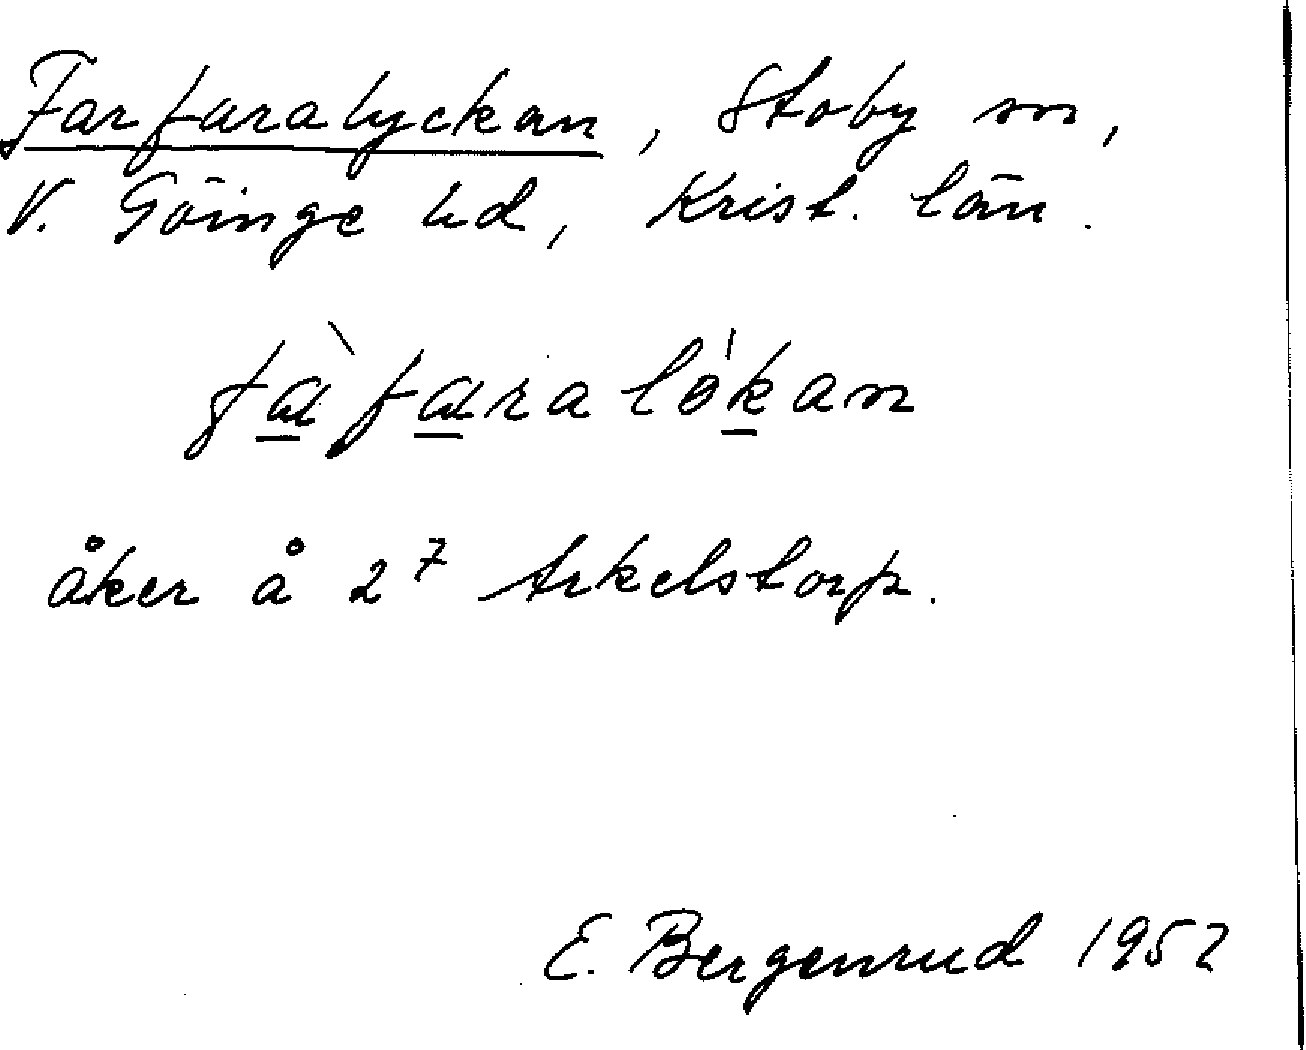 Farfaralyckan, Stoby sn,
V. Göinge hd, Krist. län.
fàfaralökan
åker å 2⁷ Arkelstorp.
E. Bergenrud 1952